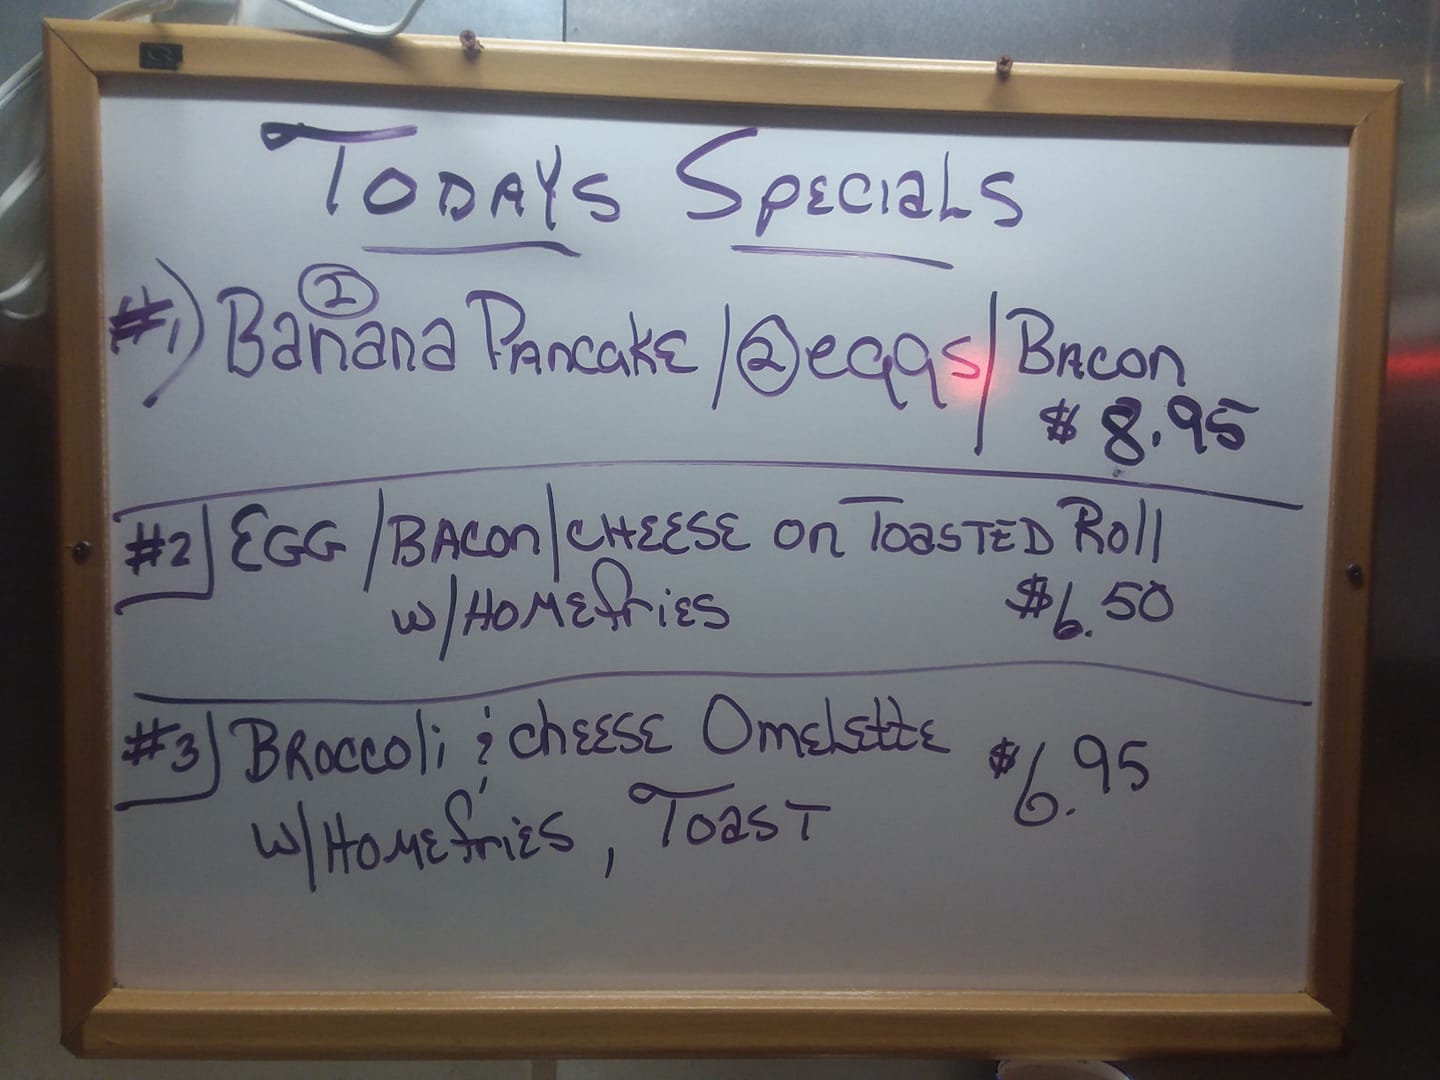 TODAYS SPECIALS
#1) Banana PANCAKE / 2 eggs / BACON
$8.95
#2 EGG / BACON / CHEESE on TOASTED Roll
w/ HOMEfries $6.50
#3 BROCCOli & chEESE OmELEttE $6.95
w/ HOMEfries, Toast